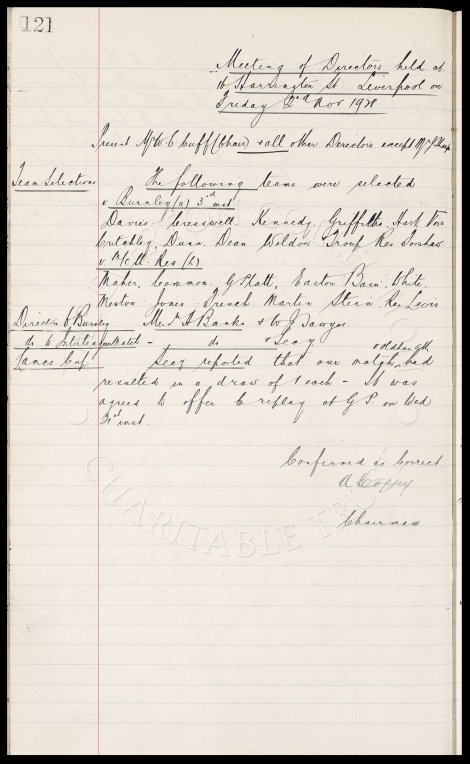 121
Meeting of Directors held at
16 Harrington St Liverpool on
Friday 2nd Nov 1928
Present Mr W C Cuff (Chair) & all other Directors except Mr J Sharp
Team Selections
The following teams were selected
v Burnley (a) 3rd inst
Davies Cresswell, Kennedy, Griffiths, Hart
Critchley, Dunn, Dean Weldon Troup Res
v M/c U Res (h)
Maher, Common, G Platt, Easton Bain White
Meston Jones French Martin Stein Res Lewis
Directors to Burnley
Messrs A Banks & W J Sawyer
do to Interleague Match -
do
" Secy
Lancs Cup
v Oldham Ath
Secy reported that our match had
resulted in a draw of 1 each - It was
agreed to offer to replay at G.P. on Wed
inst.
Confirmed as Correct
A Coffey
Chairman
CHARITABLE TRUST